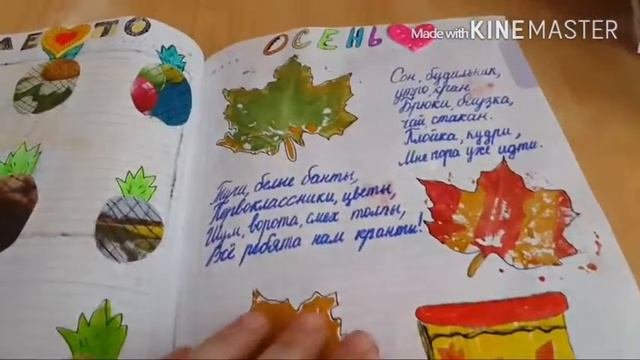 ЛЕТО
ОСЕНЬ
Made with KINEMASTER
Сон, будильник,
утро, кран.
Брюки, блузка,
чай стакан.
Плойка, кудри,
Мне пора уже идти.
Туги, белые банты,
Первоклассники, цветы,
Шум, ворота, смех толпы,
Всё ребята нам кранты!